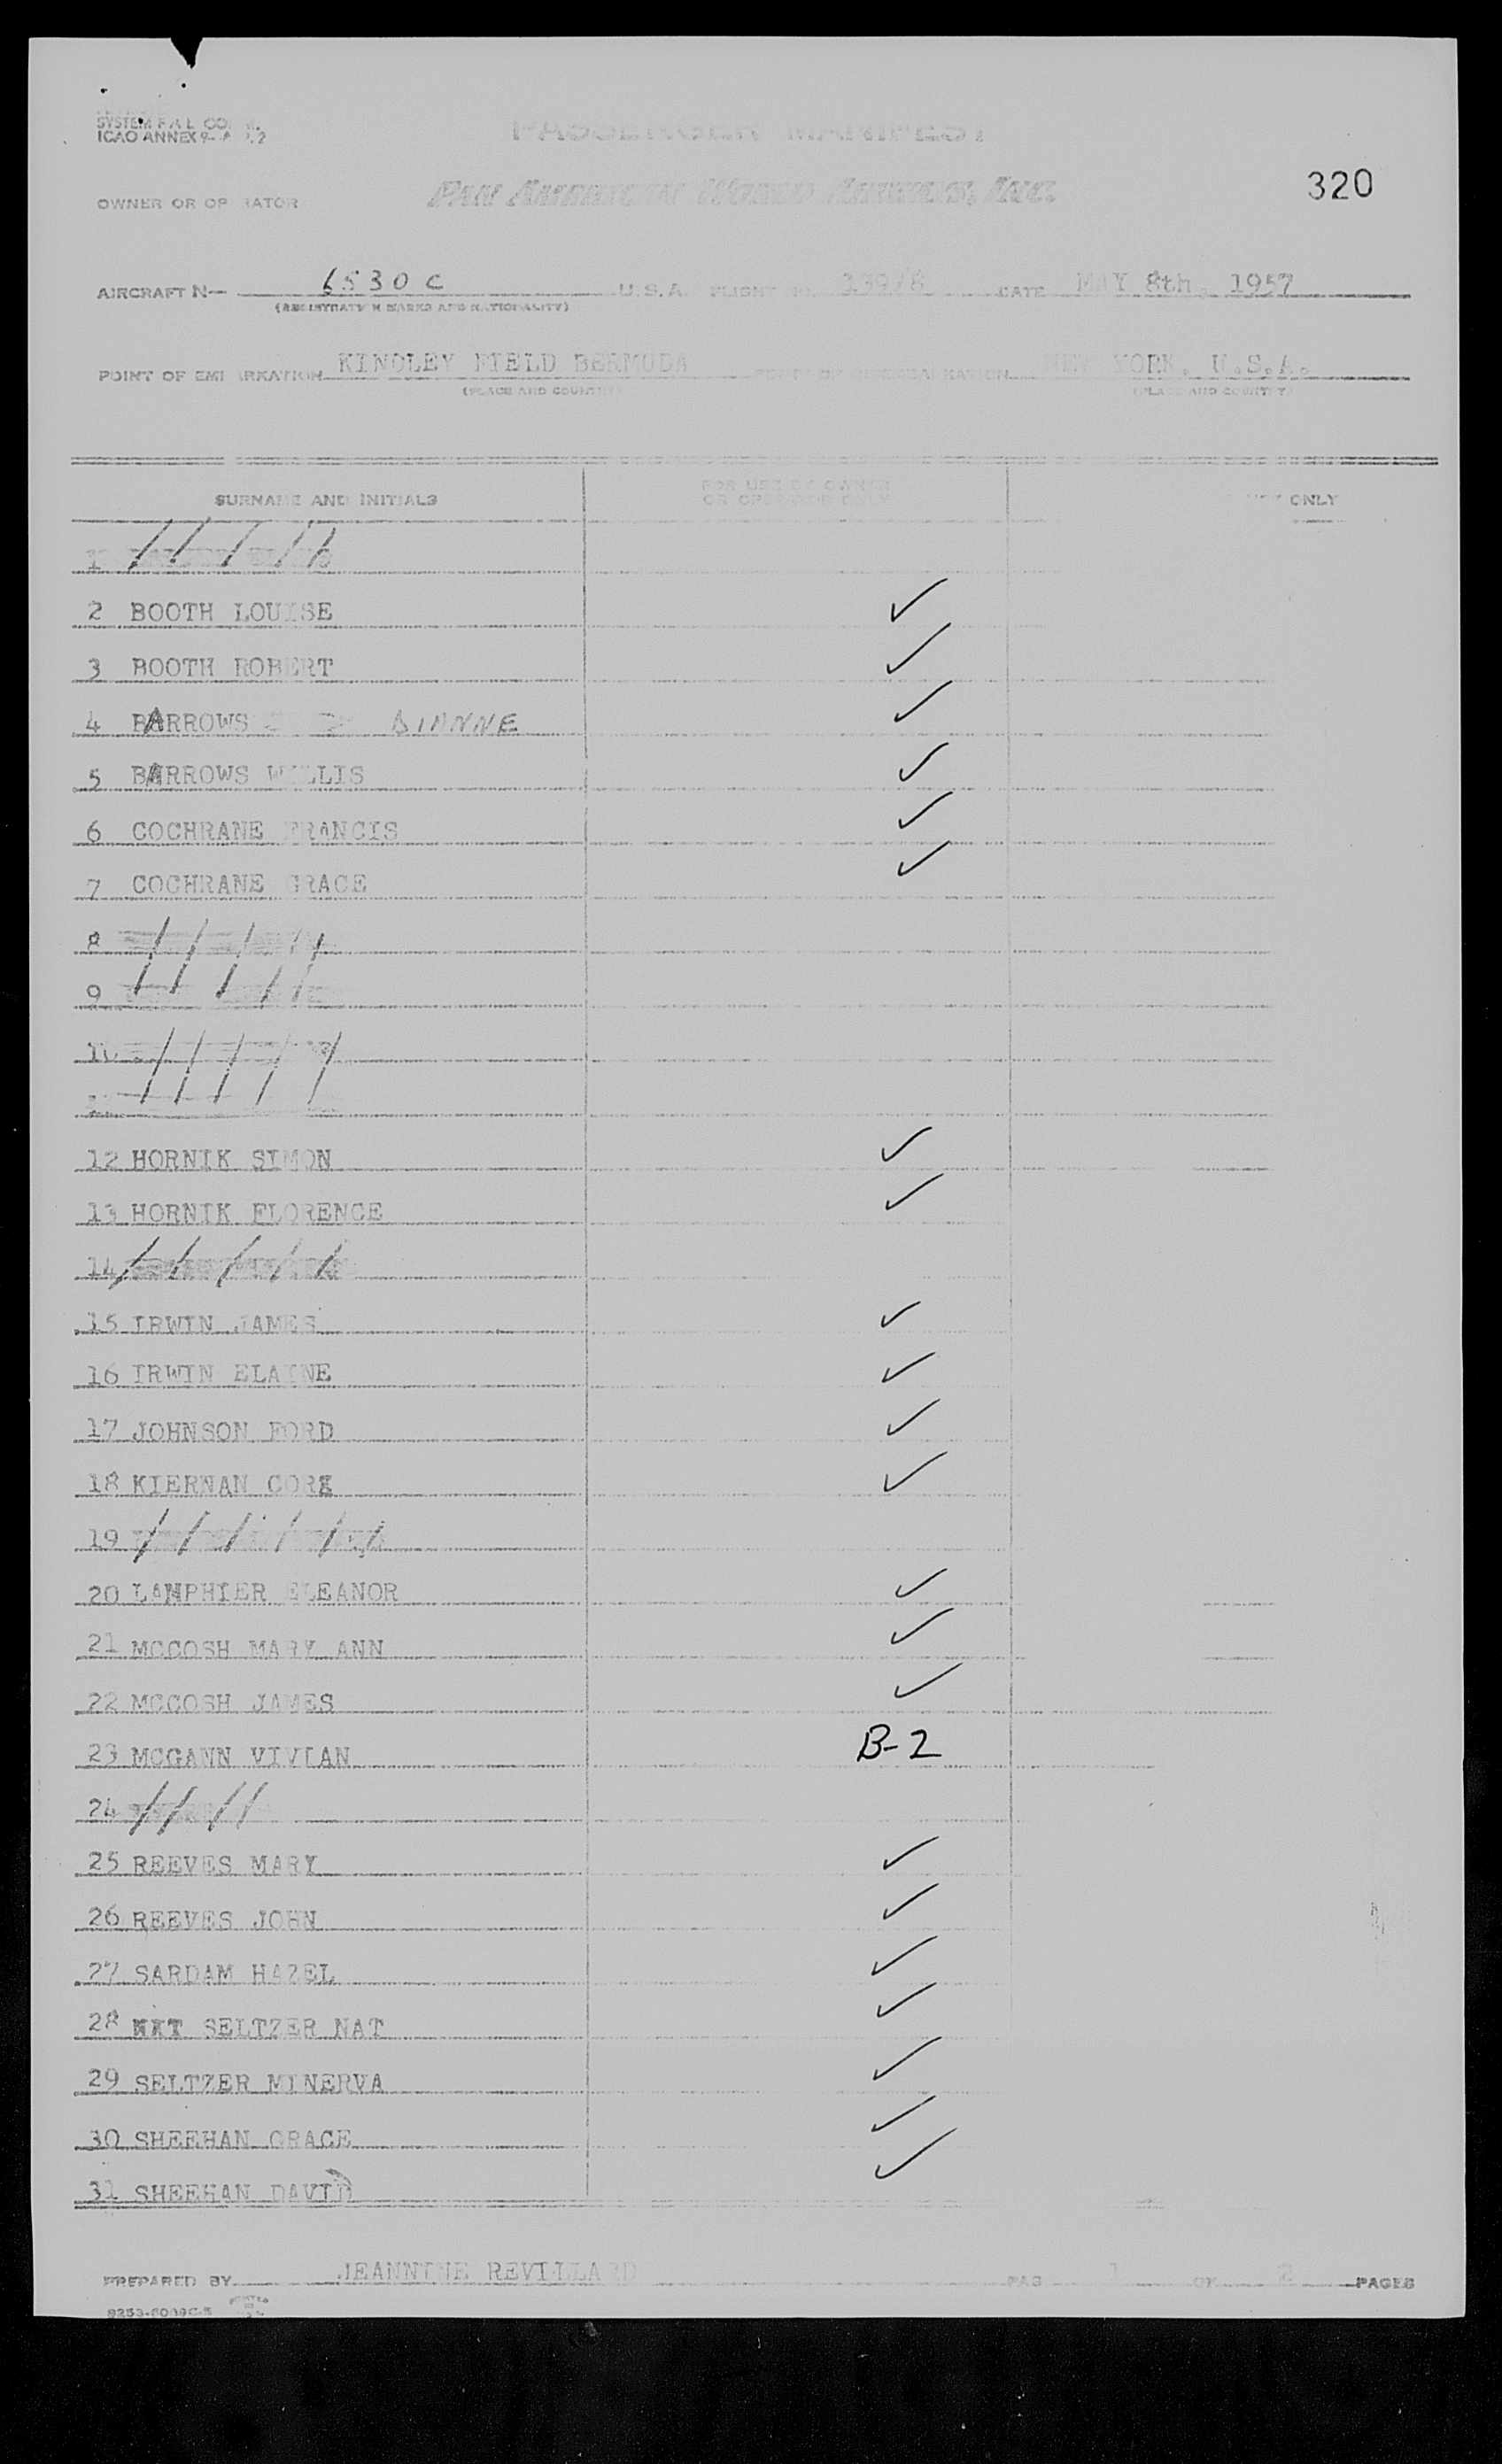 SYSTEM
ICAO ANNEX 9
PASSENGER MANIFEST
320
OWNER OR OPERATOR
PAN AMERICAN WORLD AIRWAYS, INC.
AIRCRAFT N— 6530C U.S.A. FLIGHT DATE MAY 8th, 1957
(REGISTRATION MARKS AND NATIONALITY)
POINT OF EMBARKATION KINDLEY FIELD BERMUDA NEW YORK, U.S.A.
(PLACE AND COUNTRY) (PLACE AND COUNTRY)
SURNAME AND INITIALS
FOR USE BY OWNER
OR OPERATOR ONLY
ONLY
1
2 BOOTH LOUISE ✓
3 BOOTH ROBERT ✓
4 BARROWS DIANNE ✓
5 BARROWS WILLIS ✓
6 COCHRANE FRANCIS ✓
7 COCHRANE GRACE ✓
8
9
10
12 HORNIK SIMON ✓
13 HORNIK FLORENCE ✓
14
15 IRWIN JAMES ✓
16 IRWIN ELAINE ✓
17 JOHNSON FORD ✓
18 KIERNAN ✓
19
20 LAMPHIER ELEANOR ✓
21 MCCOSH MARY ANN ✓
22 MCCOSH JAMES ✓
23 MCGANN VIVIAN B-2
24
25 REEVES MARY ✓
26 REEVES JOHN ✓
27 SARDAM HAZEL ✓
28 SELTZER NAT ✓
29 SELTZER MINERVA ✓
30 SHEEHAN GRACE ✓
31 SHEEHAN DAVID ✓
PREPARED BY JEANNINE REVILLARD PAGE 1 OF 2 PAGES